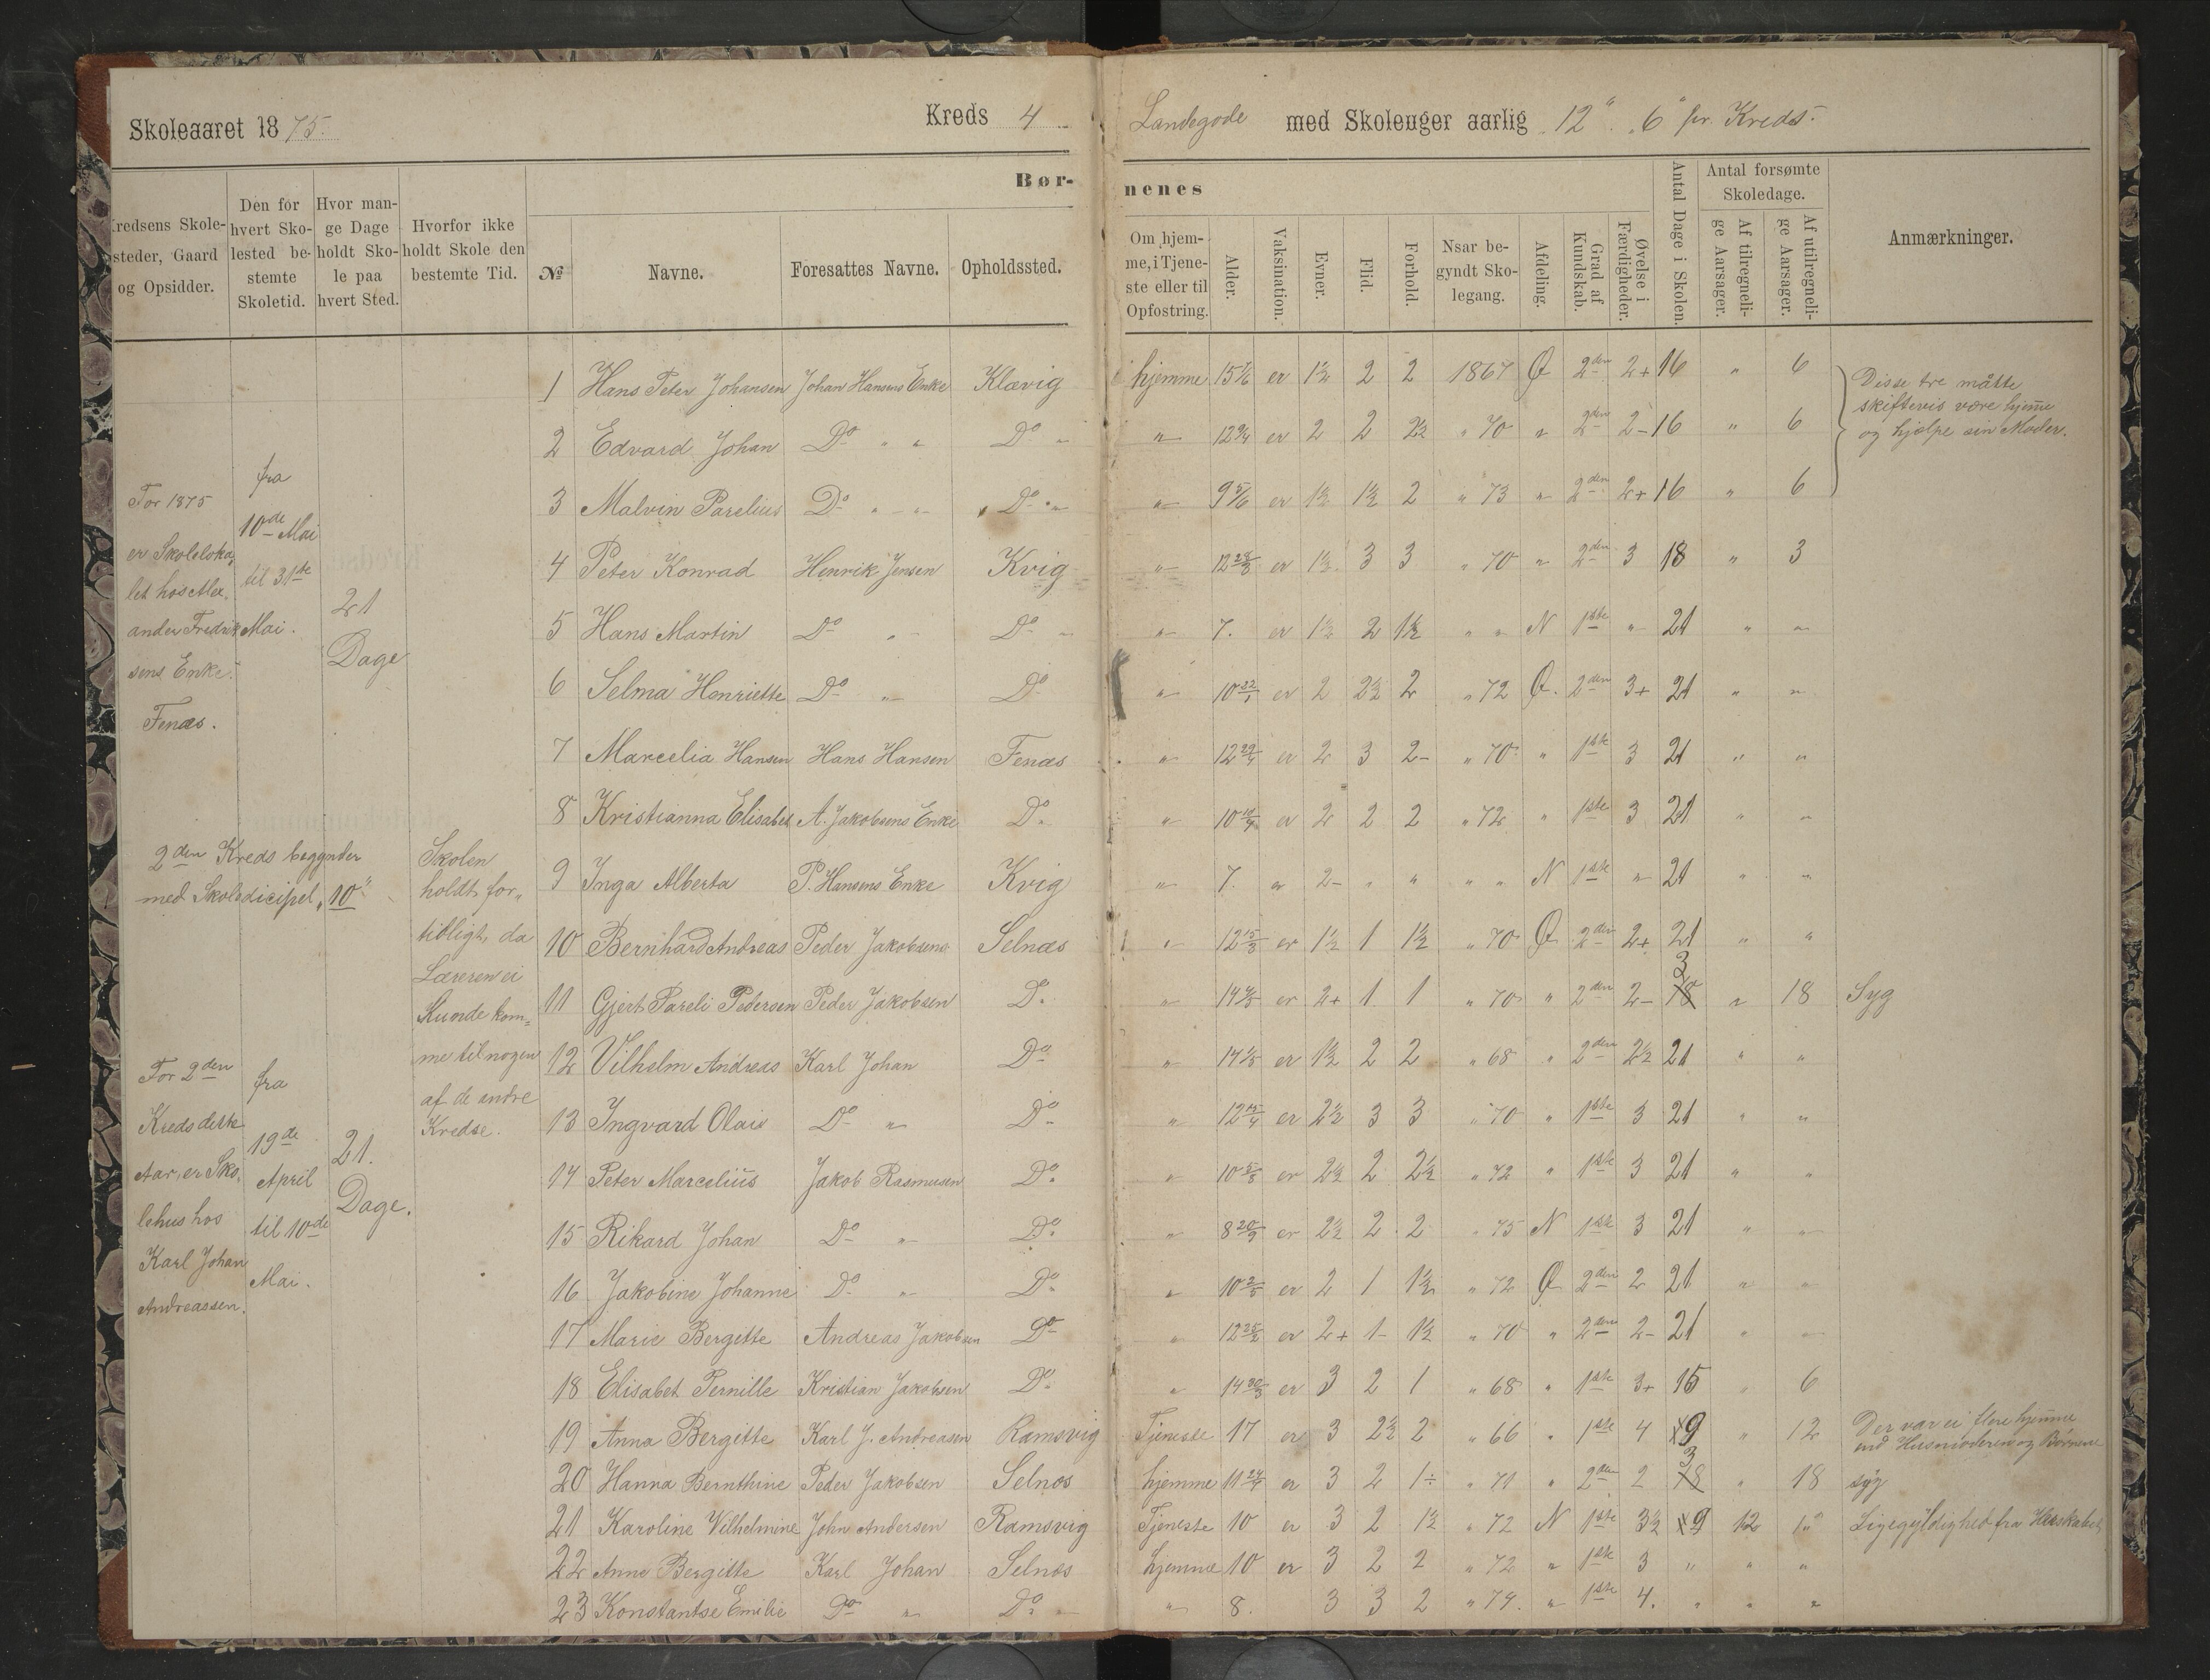 Skoleaaret 1875.
Kreds 4
Landegode med Skoleuger aarlig "12" "6" pr. Kreds.
Kredsens Skolesteder, Gaard og Opsidder.
Den for hvert Skolested bestemte Skoletid.
Hvor mange Dage holdt Skole paa hvert Sted.
Hvorfor ikke holdt Skole den bestemte Tid.
Bør-
nenes
№
Navne.
Foresattes Navne.
Opholdssted.
Om hjemme, i Tjeneste eller til Opfostring.
Alder.
Vaksination.
Evner.
Flid.
Forhold.
Naar begyndt Skolegang.
Afdeling.
Grad af Kundskab.
Øvelse i Færdigheder.
Antal Dage i Skolen.
Antal forsømte Skoledage.
Af tilregnelige Aarsager.
Af utilregnelige Aarsager.
Anmærkninger.
For 1875
er Skoleloka,
let hos Alex.
ander Fredrik
sens Enke.
Fenæs.
fra
10de Mai
til 31te
Mai.
21
Dage
2den Kreds begynder
med Skoledicipel "10"
For 2den
Kreds dette
Aar, er Sko,
lehus hos
Karl Johan
Andreassen.
fra
19de
April
til 10de
Mai.
21.
Dage.
Skolen
holdt for,,
tidligt, da
Læreren ei
kunde kom=
me til nogen
af de andre
Kredse.
1 Hans Peter Johansen Johan Hansens Enke Klævig hjemme 15 er 1½ 2 2 1867 Ø 2den 2+ 16 " 6
Disse tre måtte
skiftevis være hjeme
og hjælpe sin Moder.
2 Edvard Johan Do " " Do " " 12 er 2 2 2½ " 70 " 2den 2- 16 " 6
3 Malvin Parelius Do " " Do " " 9 5/6 er 1½ 1½ 2 " 73 " 2den 2+ 16 " 6
4 Peter Konrad Henrik Jensen Kvig " 12 er 1½ 3 3 " 70 " 2den 3 18 " 3
5 Hans Martin Do " Do " " 7. er 1½ 2 1½ " " N 1ste " 21 " "
6 Selma Henriette Do " Do " 10 er 2 2½ 2 " 72 Ø. 2den 3+ 21 " "
7 Marcelia Hansen Hans Hansen Fenæs " 12 er 2 3 2- " 70 " 1ste 3 21 " "
8 Kristianna Elisabet A. Jakobsens Enke Do " 10 er 2 2 2 " 72 " 1ste 3 21 " "
9 Inga Alberta P. Hansens Enke Kvig " 7. er 2- " " " " N 1ste " 21 " "
10 Bernhard Andreas Peder Jakobsens Selnæs " 12 er 1½ 1 1½ " 70 Ø 2den 2+ 21 " "
11 Gjert Pareli Pedersen Peder Jakobsen Do " 14 er 2+ 1 1 " 70 " 2den 2- 3 18 " 18 Syg
12 Vilhelm Andreas Karl Johan Do " 14 er 1½ 2 2 " 68 " 2den 2½ 21 " "
13 Ingvard Olai Do " Do " 12 er 2½ 3 3 " 70 " 1ste 3 21 " "
14 Peter Marcelius Jakob Rasmusen Do " 10 er 2½ 2 2½ " 72 " 1ste 3 21 " "
15 Rikard Johan Do " Do " 8 er 2½ 2 2 " 75 N 1ste 3 21 " "
16 Jakobine Johanne Do " Do " 10 er 2 1 1½ " 72 Ø 2den 2 21 " "
17 Marie Bergitte Andreas Jakobsen Do " 12 er 2+ 1- 1½ " 70 " 2den 2- 21 " "
18 Elisabet Pernille Kristian Jakobsen Do " 14 er 3 2 1 " 68 " 1ste 3+ 15 " 6
19 Anna Bergitte Karl J. Andreasen Ramsvig Tjeneste 17 er 3 2½ 2 " 66 " 1ste 4 9 " 12
Der var ei flere hjeme
end Husmoderen og Børnene
20 Hanna Bernthine Peder Jakobsen Selnæs hjemme 11 er 3 2 1÷ " 71 " 2den 2 3 18 " 18 syg
21 Karoline Vilhelmine John Andersen Ramsvig Tjeneste 10 er 3 2 1½ " 72 N 1ste 3½ 9 12 Ligegyldighed fra Herskabet
22 Anne Bergitte Karl Johan Selnæs hjemme 10 er 3 2 2 " 72 " 1ste 3 " " "
23 Konstantse Emilie Do " Do " " 8. 3 3 2 " 74. " 1ste 4. " " "